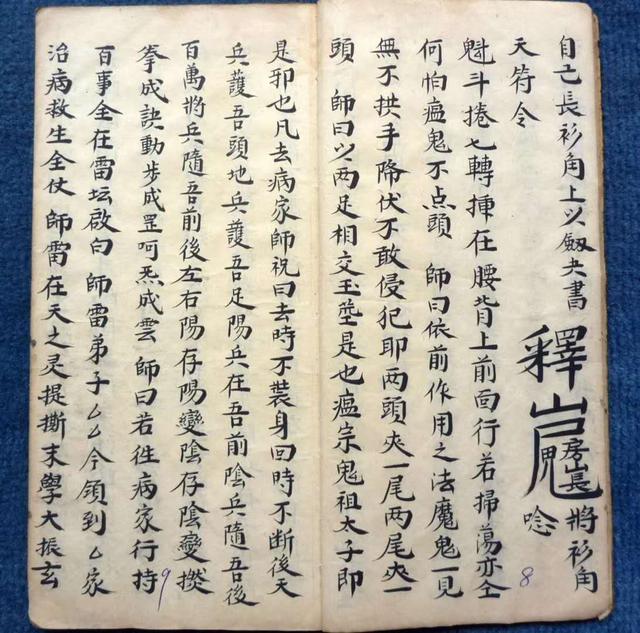 自己長衫角上以劔夬書
釋
將衫角
天符令
唸
魁斗捲七轉挿在腰背上前面行若掃蕩亦仝
何怕瘟鬼不点頭 師曰依前作用之法魔鬼一見
無不拱手降伏不敢侵犯耶两頭夾一尾两尾夾一
頭 師曰以两足相交玉是也瘟宗鬼祖太子即
8
是邪也凡去病家師祝曰去時不裝身回時不断後天
兵護吾頭地兵護吾足陽兵在吾前陰兵隨吾後
百萬將兵隨吾前後左右陽存陽變陰存陰變
拳成訣動步成罡呵炁成雲 師曰若徃病家行持
9
百事全在雷坛啟白 師雷弟子厶厶今領到厶家
治病救生全仗 師雷在天之灵提撕末學大振玄